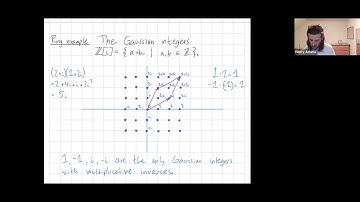 Ring example The Gaussian integers
ℤ[i] = { a+bi | a,b ∈ ℤ }.
(2+i)(1+2i)
= 2+4i+i+2i²
= 5i
1·1=1
-1·(-1)=1
1, -1, i, -i are the only Gaussian integers
with multiplicative inverses.
Henry Adams